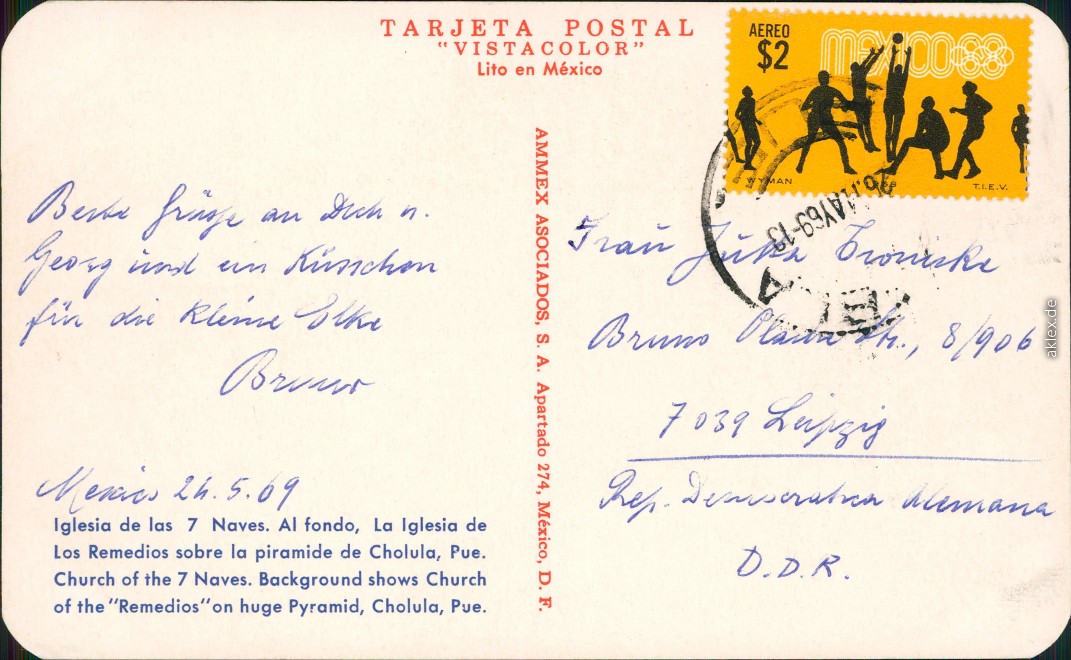 TARJETA POSTAL
"VISTACOLOR"
Lito en México
AEREO
$2
MEXICO 68
WYMAN
68
T.I.E.V.
26.MAY69-13
Beste Grüsse an Dich u.
Georg und ein Küsschen
für die kleine Elke
Bruno
Mexico 24.5.69
Iglesia de las 7 Naves. Al fondo, La Iglesia de
Los Remedios sobre la piramide de Cholula, Pue.
Church of the 7 Naves. Background shows Church
of the "Remedios" on huge Pyramid, Cholula, Pue.
AMMEX ASOCIADOS, S. A. Apartado 274, México, D. F.
Frau Jutta
Bruno Plache Str., 8/906
7039 Leipzig
Rep. Democratica Alemana
D.D.R.
aklex.de